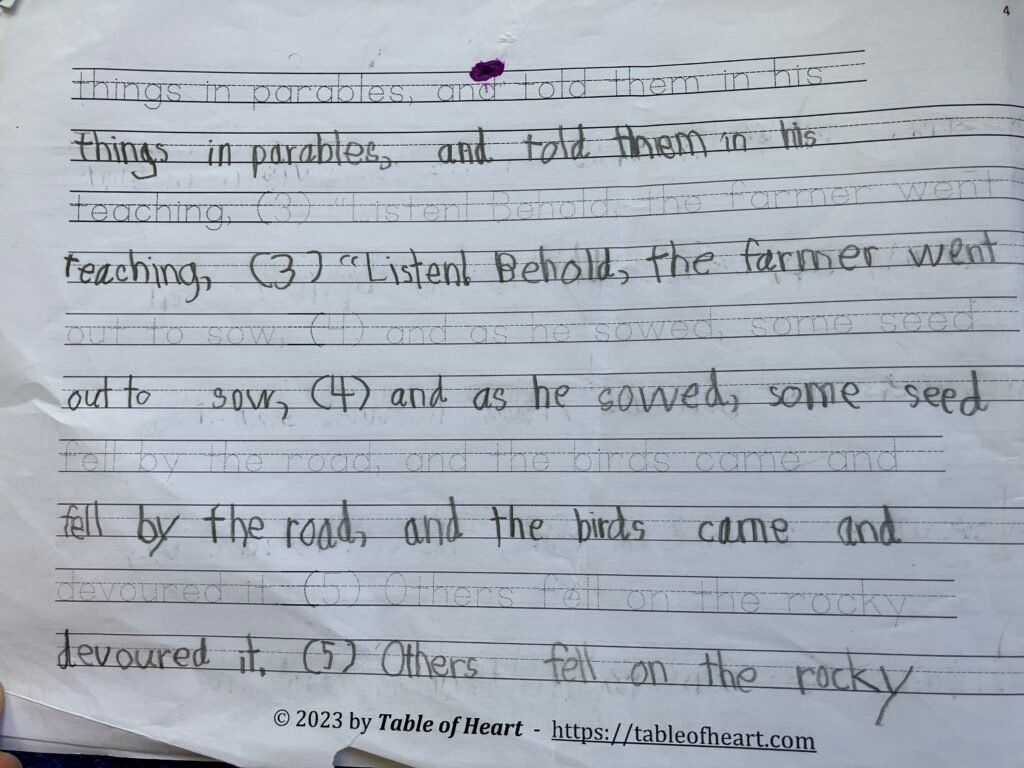 4
things in parables, and told them in his
things in parables, and told them in his
teaching, (3) "Listen! Behold, the farmer went
teaching, (3) "Listen! Behold, the farmer went
out to sow, (4) and as he sowed, some seed
out to sow, (4) and as he sowed, some seed
fell by the road, and the birds came and
fell by the road, and the birds came and
devoured it. (5) Others fell on the rocky
devoured it. (5) Others fell on the rocky
© 2023 by Table of Heart - https://tableofheart.com